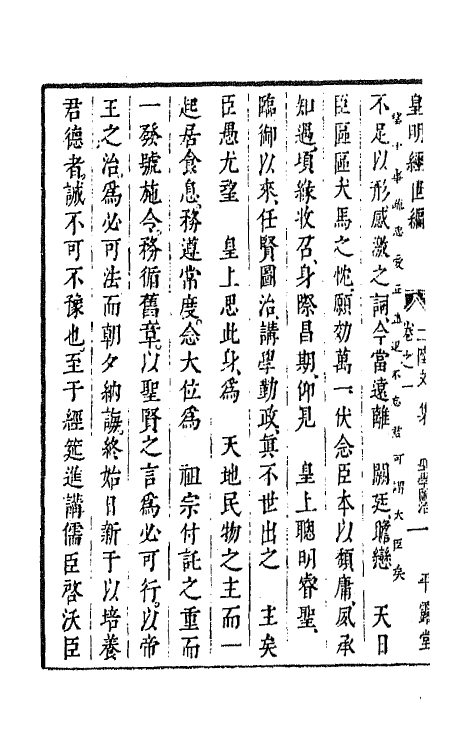 皇明經世編 卷之一 二陸文集 聖學闢治 一 平露堂
不足以形感激之詞今當遠離 闕廷瞻戀 天日
臣區區犬馬之忱願効萬一伏念臣本以頹庸夙承
知遇頃緣收召身際昌期仰見 皇上聰明睿聖
臨御以來任賢圖治講學勤政真不世出之 主矣
臣愚尤望 皇上思此身為 天地民物之主而一
起居食息務遵常度念大位為 祖宗付託之重而
一發號施令務循舊章以聖賢之言為必可行以帝
王之治為必可法而朝夕納誨終始日新于以培養
君德者誠不可不豫也至于經筵進講儒臣啓沃臣